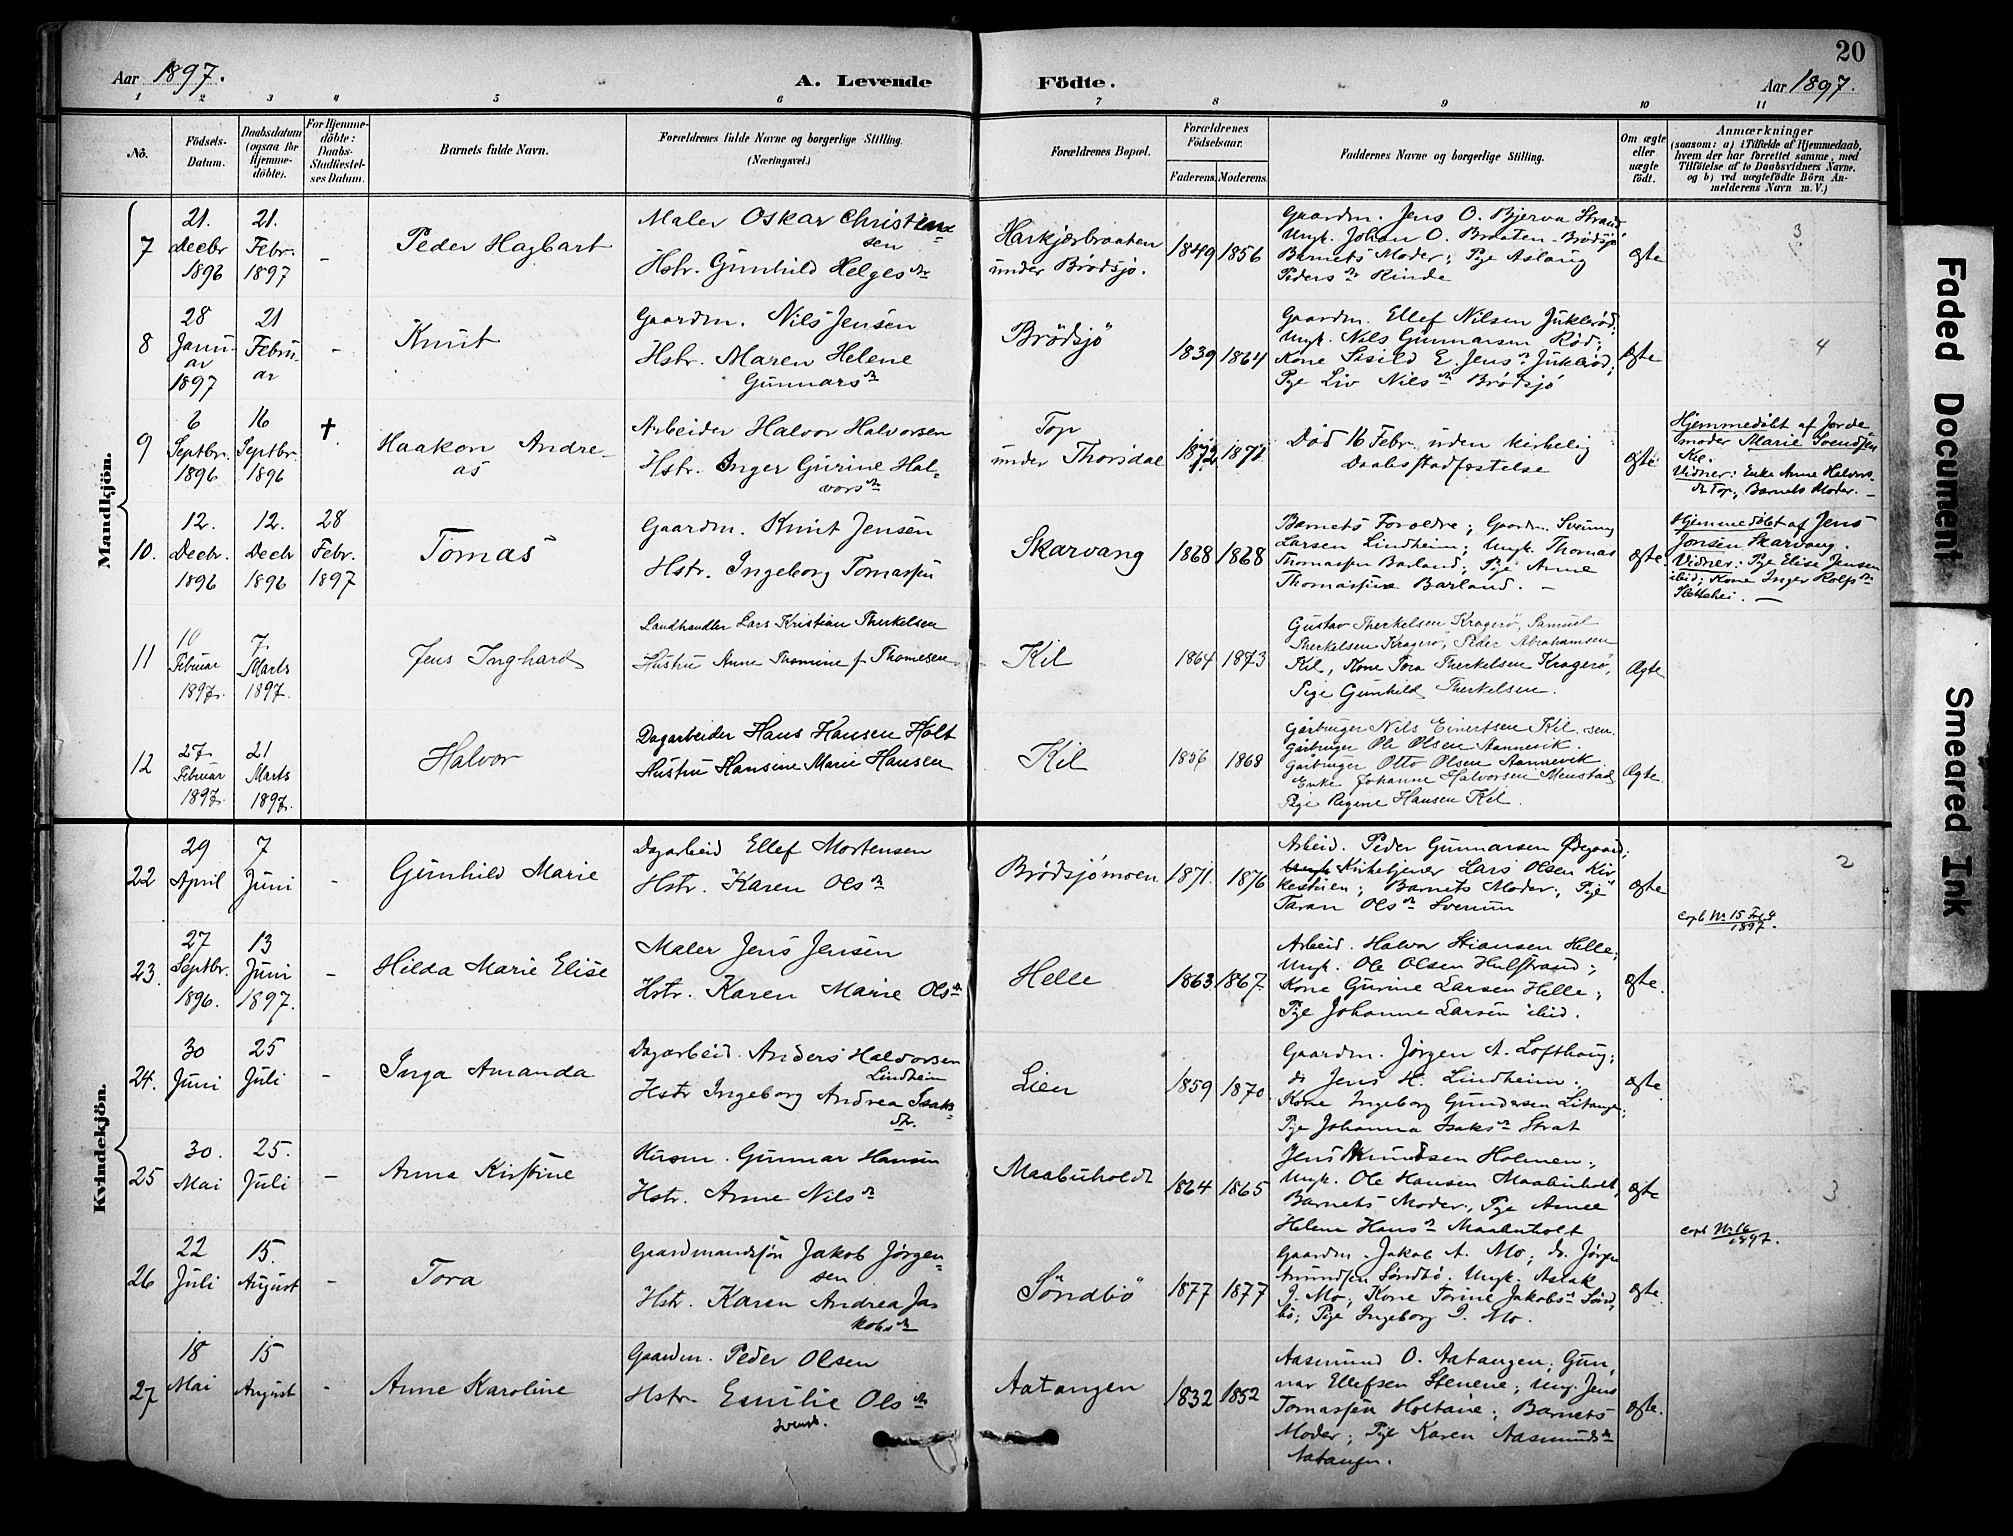 20
Aar 1897.
A. Levende Födte.
Aar 1897.
1 2 3 4 5 6 7 8 9 10 11
No.
Födsels-
Datum.
Daabsdatum
(ogsaa for
Hjemme-
döbte).
For Hjemme-
döbte:
Daabs-
Stadfæstel-
ses Datum.
Barnets fulde Navn.
Forældrenes fulde Navne og borgerlige Stilling.
(Næringsvei.)
Forældrenes Bopæl.
Forældrenes
Födselsaar.
Faderens. Moderens.
Faddernes Navne og borgerlige Stilling.
Om ægte
eller
uægte
födt.
Anmærkninger
(saasom: a) i Tilfælde af Hjemmedaab,
hvem der har forrettet samme, med
Tilföielse af to Daabsvidners Navne.
og b) ved uægtefödte Börn An-
melderens Navn m. V.)
Mandkjön.
7
21.
Decbr
1896
21.
Febr.
1897
-
Peder Hagbart
Maler Oskar Christian-
sen
Hstr. Gunhild Helgesdr
Harkjærbraaten
under Brødsjø.
1849 1856
Gaardm. Jens O. Bjerva Strand
Ungk. Johan O. Braaten-Brødsjø
Barnets Moder; Pige Aslaug
Pedersdr Rinde
ægte
3
8
28
Janu-
ar
1897
21
Febru-
ar
-
Knut
Gaardm. Nils Jensen
Hstr. Maren Helene
Gunnarsdr
Brödsjö
1839 1864
Gaardm. Ellef Nilsen Juklerød;
Ungk. Nils Gunnarsen Rød;
Kone Sisild E. Jensdr Juklerød;
Pige Liv Nilsdr Brödsjö
ægte
4
9
6
Septbr.
1896
16
Septbr.
1896
†
Haakon Andre-
as
Arbeider Halvor Halvorsen
Hstr. Inger Gurine Hal-
vorsdr
Top
under Thorsdal
1872 1871
Död 16 Febr. uden kirkelig
Daabsstadfæstelse
ægte
Hjemmedøbt af Jorde-
moder Marie Svendsen
Kil.
Vidner: Enke Anne Halvors-
dr Top, Barnets Moder. -
10.
12.
Decbr.
1896
12.
Decbr
1896
28
Febr.
1897
Tomas
Gaardm. Knut Jensen
Hstr. Ingeborg Tomassen
Skarvang
1868 1868
Barnets Forældre; Gaardm. Sveinung
Larsen Lindheim; Ungk. Thomas
Thomassen Barland; Pige Anne
Thomassine Barland. -
ægte
Hjemmedøbt af Jens
Jonsen Skarvang.
Vidner: Pige Elise Jensen
ibid; Kone Inger Rolfsdr
Slettehei. -
11
10
Februar
1897.
7.
Marts
1897.
Jens Inghard
Landhandler Lars Kristian Therkelsen
Hustru Anne Thomine f. Thomesen
Kil
1864 1873
Gustav Therkelsen Kragerø, Samuel
Therkelsen Kragerø, Peder Abrahamsen
Kil, Kone Tora Therkelsen Kragerø,
Pige Gunhild Therkelsen.
Ægte
12
27
Februar
1897.
21
Marts
1897.
Halvor
Dagarbeider Hans Hansen Holt
Hustru Hansine Marie Hansen
Kil
1856 1868
Gårbruger Nils Einertsen Kil. sen.
Gårbruger Ole Olsen Aannevik.
Gårbruger Otto Olsen Aannevik.
Enke Johanne Halvorsen Menstad
Pige Regine Hansen Kil.
Ægte.
Kvindekjön.
22
29
April
7
Juni
-
Gunhild Marie
Dagarbeid Ellef Mortensen
Hstr. Karen Olsdr
Brødsjömoen
1871. 1876
Arbeid. Peder Gunnarsen Ødegaard;
Kirketjener Lars Olsen Kir-
kestuen; Barnets Moder; Pige
Taran Olsdr Svenum
ægte
2
23.
27
Septbr.
1896.
13
Juni
1897.
-
Hilda Marie Elise
Maler Jens Jensen
Hstr. Karen Marie Olsdr
Helle
1863 1867
Arbeid. Halvor Stiansen Helle;
Ungk. Ole Olsen Hulstrand;
Kone Gurine Larsen Helle;
Pige Johanne Larsen ibid.
ægte.
1897.
24.
30
Juni
25
Juli
-
Inga Amanda
Dagarbeid. Anders Halvorsen
Lindheim
Hstr Ingeborg Andrea Isaks-
dtr.
Lien
1859 1870
Gaardm. Jørgen A. Lofthaug;
do Jens H. Lindheim.
Kone Ingeborg Gundersen Litangen;
Pige Johanna Isaksdr Strat
ægte.
25
30.
Mai
25.
Juli
-
Anna Kirstine
Husm. Gunnar Hansen
Hstr. Anne Nilsdr
Maabuholdt
1864 1865
Jens Knudsen Holmen;
Ungk. Ole Hansen Maabuholt,
Barnets Moder, Pige Anne
Helene Hansdr Maabuholt
ægte
3
26
22
Juli
15.
August
-
Tora
Gaardmandssøn Jakob Jørgen-
sen
Hstr. Karen Andrea Ja-
kobsdr
Söndbö
1877 1877
Gaardm. Jakob A. Mo; do. Jørgen
Amundsen Söndbö. Ungk. Aslak
J. Mo; Kone Torine Jakobsdr Sönd-
bö; Pige Ingeborg J. Mo.
ægte.
1897.
27
18
Mai
15
August
-
Anne Karoline
Gaardm. Peder Olsen
Hstr. Emilie Olsdr
Aatangen
1832 1852
Aasmund O. Aatangen; Gun-
nar Ellefsen Stenene; Ung. Jens
Tomassen Holtane; Barnets
Moder; Pige Karen Aasmundsdr
Aatangen.
ægte.
Faded Document
Smeared Ink